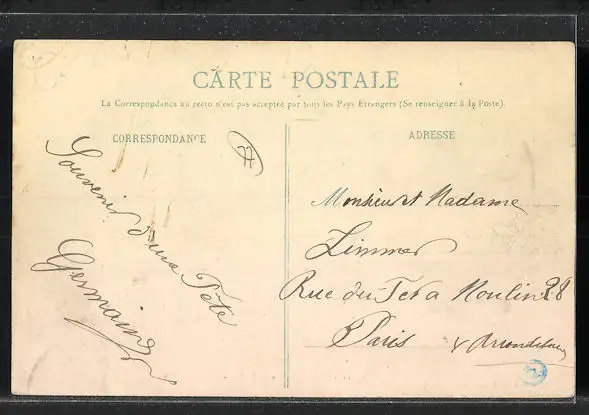 CARTE POSTALE
La Correspondance au recto n'est pas acceptée par tous les Pays Etrangers (Se renseigner à la Poste).
CORRESPONDANCE
Souvenir d'une Fête
Germaine
ADRESSE
Monsieur et Madame
Zimmer
Rue du Fer a Moulin 28
Paris